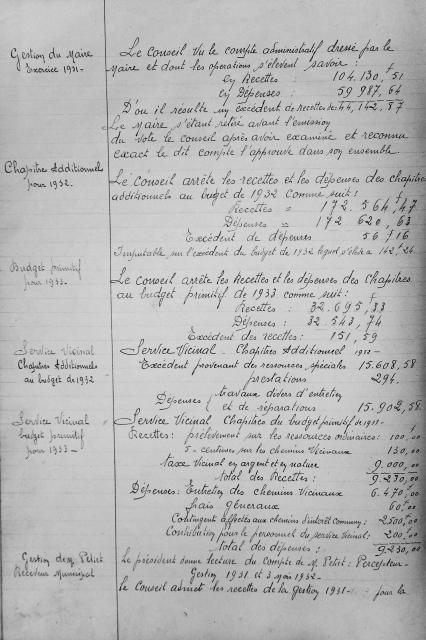 Gestion du Maire
Exercice 1931-
Le Conseil vu le compte administratif dressé par le
Maire et dont les opérations s'élèvent savoir :
en Recettes 104.130,51
en Dépenses : 59 987,64
D'où il résulte un excédent de recettes de 44,142,87
Le Maire s'étant retiré avant l'émission
du vote le conseil après avoir examiné et reconnu
exact le dit compte l'approuve dans son ensemble.
Chapitres Additionnels
pour 1932.
Le Conseil arrête les recettes et les dépenses des chapitres
additionnels au buget de 1932 comme suit :
Recettes = 172.564,47
Dépenses = 172 620,63
Excédent de dépenses 56 716
Imputable sur l'excédent du budget de 1932 lequel s'élève à 142 24
Budget primitif
pour 1933.
Le conseil arrête les Recettes et les dépenses des Chapitres
au budget primitif de 1933 comme suit :
Recettes : 32.695,33
Dépenses : 32.543,74
Excédent des recettes : 151,59
Service Vicinal
Chapitres Additionnels
au budget de 1932
Service Vicinal - Chapitres Additionnel 1932-
Excédent provenant des ressources spéciales 15.608,58
prestations 294.
Dépenses travaux divers d'entretien
et de réparations 15.902,58.
Service Vicinal
budget primitif
pour 1933-
Service Vicinal Chapitres du budget primitif de
Recettes : prélèvement sur les ressources ordinaires : 100,00
5 centimes sur les chemins Vicinaux 130,00
taxe Vicinal en argent et en nature 9.000,00
total des Recettes : 9.230,00
Dépenses : Entretien des Chemins Vicinaux 6.470,00
frais généraux 60,00
Contingent affectés aux chemins d'intérêt commun : 2.500,00
Contribution pour le personnel du service Vicinal : 200,00
total des dépenses : 9.230,00
Gestion de M. Petit
Receveur Municipal
Le président donne lecture du compte de M. Petit : Percepteur-
Gestion 1931 et 3 mois 1932-
Le Conseil admet les recettes de la gestion 1931- : pour la